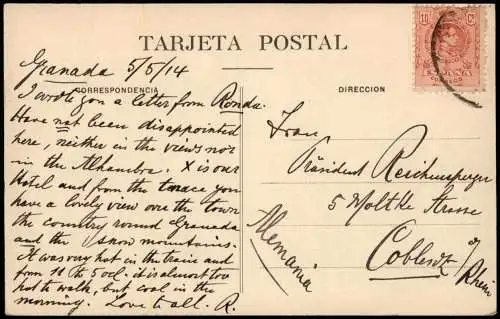 10 Cs
ESPAÑA
CORREOS
TARJETA POSTAL
CORRESPONDENCIA
DIRECCION
Granada 5/5/14
I wrote you a letter from Ronda.
Have not been disappointed
here, neither in the views nor
in the Alhambra. X is our
Hotel and from the terace you
have a lovely view over the town
the country round Granada
and the snow mountains.
It was very hot in the train and
from 11 to 5 ocl: it is almost too
hot to walk, but cool in the
morning. Love to all. R.
Frau
Präsident Reichensperger
5 Moltke Strasse
Coblenz a/
Rhein
Alemania